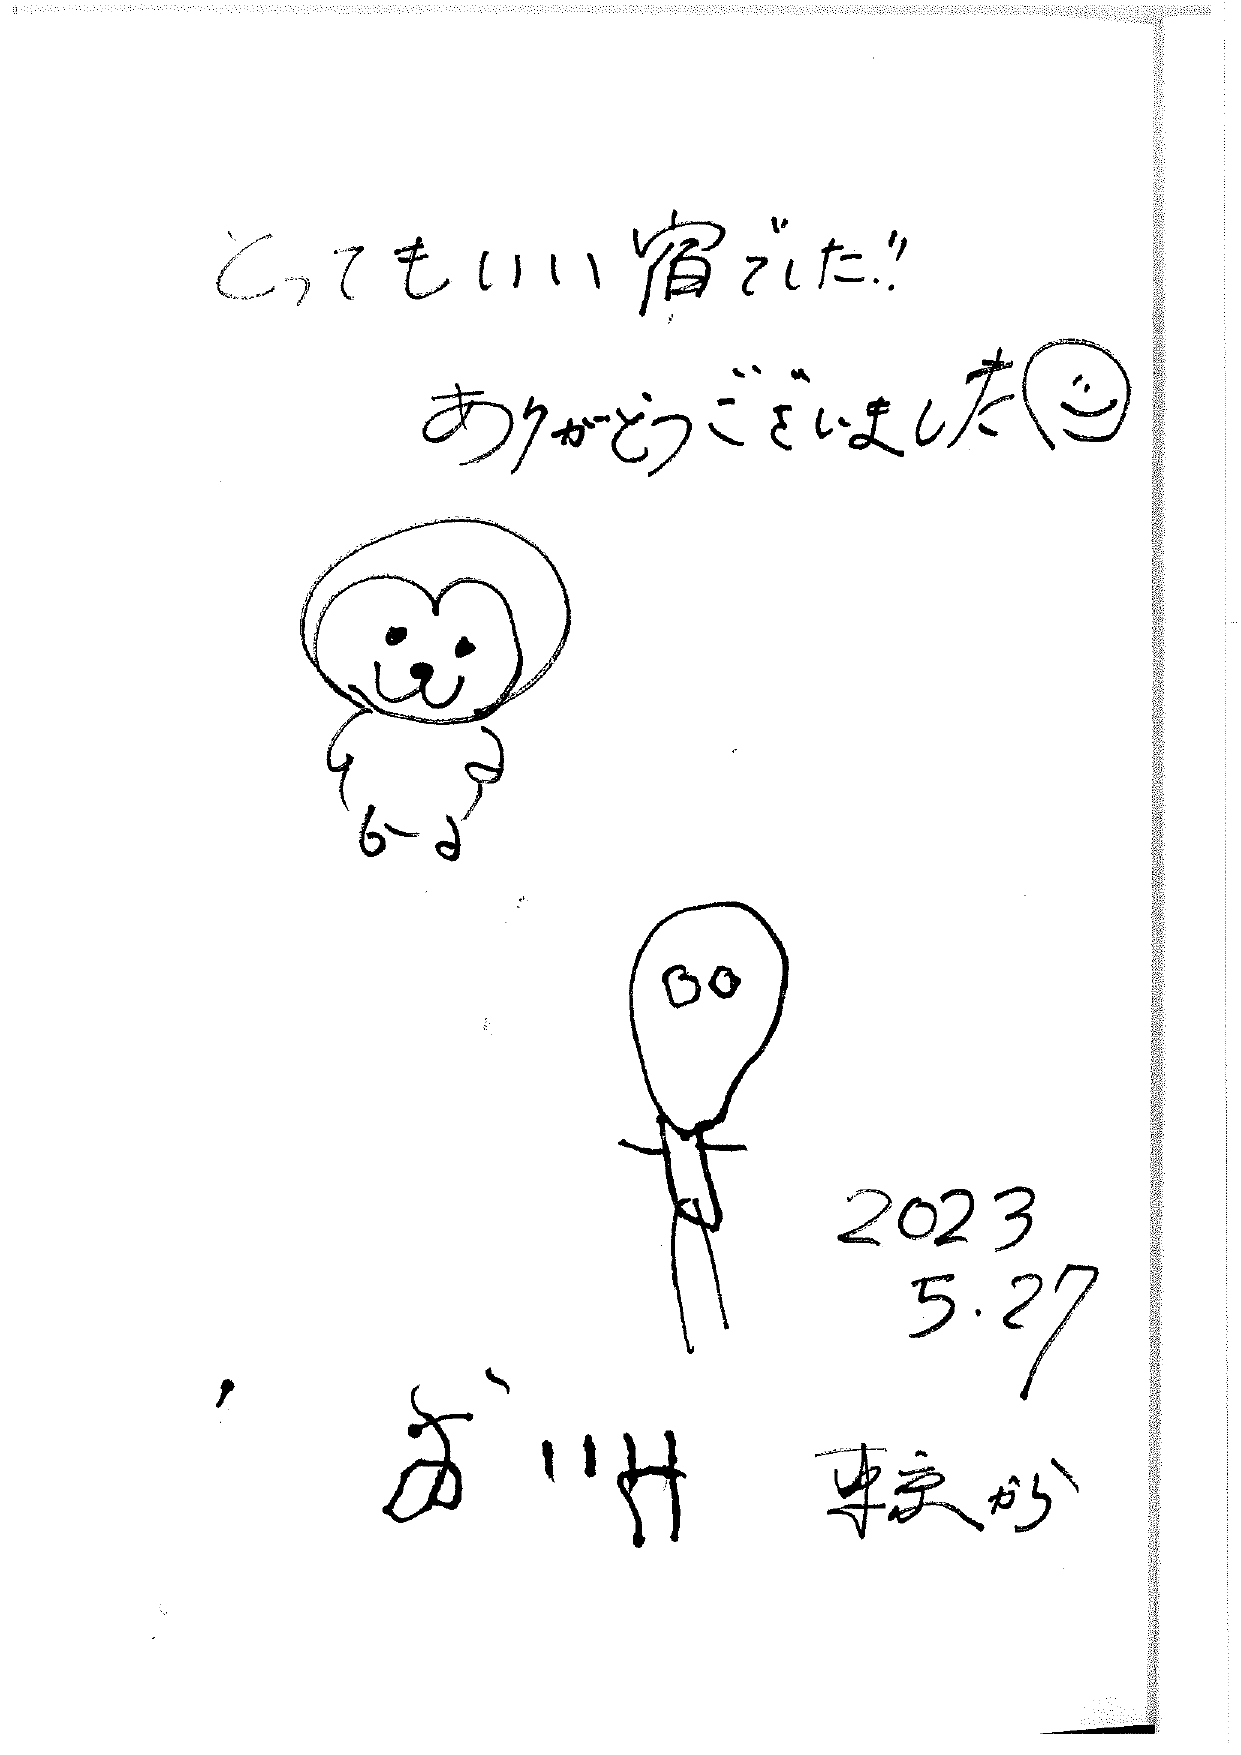 とってもいい宿でした!!
ありがとうございました
2023
5.27
東京から